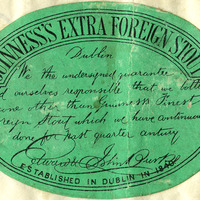 GUINNESS'S EXTRA FOREIGN STOUT
Dublin
We the undersigned guarantee
ourselves responsible that we bottle
other than Guinness Finest
reign Stout which we have continuously
done for last quarter century
ESTABLISHED IN DUBLIN IN